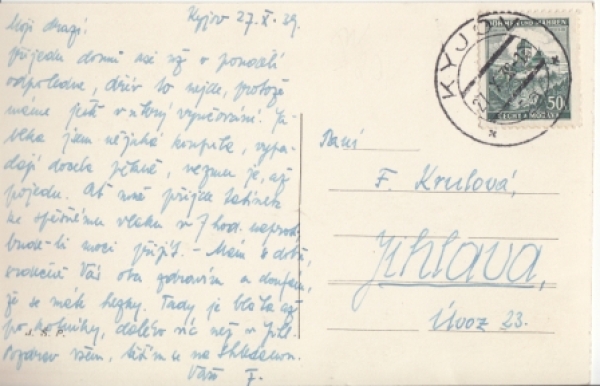 Kyjov 27.X.39.
Moji drazí!
Přijedu domů asi až v pondělí
odpoledne, dřív to nejde, protože
máme ještě v úterý vyučování. Ja-
blka jsem nějaká koupila, vypa-
dají docela pěkně, vezmu je, až
pojedu. Ať mně přijde tatínek
ke spěšnému vlaku v 7 hod. naproti,
bude-li moci přijít. – Mám se dobře,
srdečně Vás oba zdravím a doufám,
že se máte hezky. Tady je bláta až
po kotníky, daleko víc než v Jihl.
Pozdrav všem, těším se na shledanou.
Vaše F.
J. S. P.
KYJOV
BÖHMEN UND MÄHREN
50
ČECHY A MORAVA
Paní
F. Krulová,
Jihlava,
Úvoz 23.